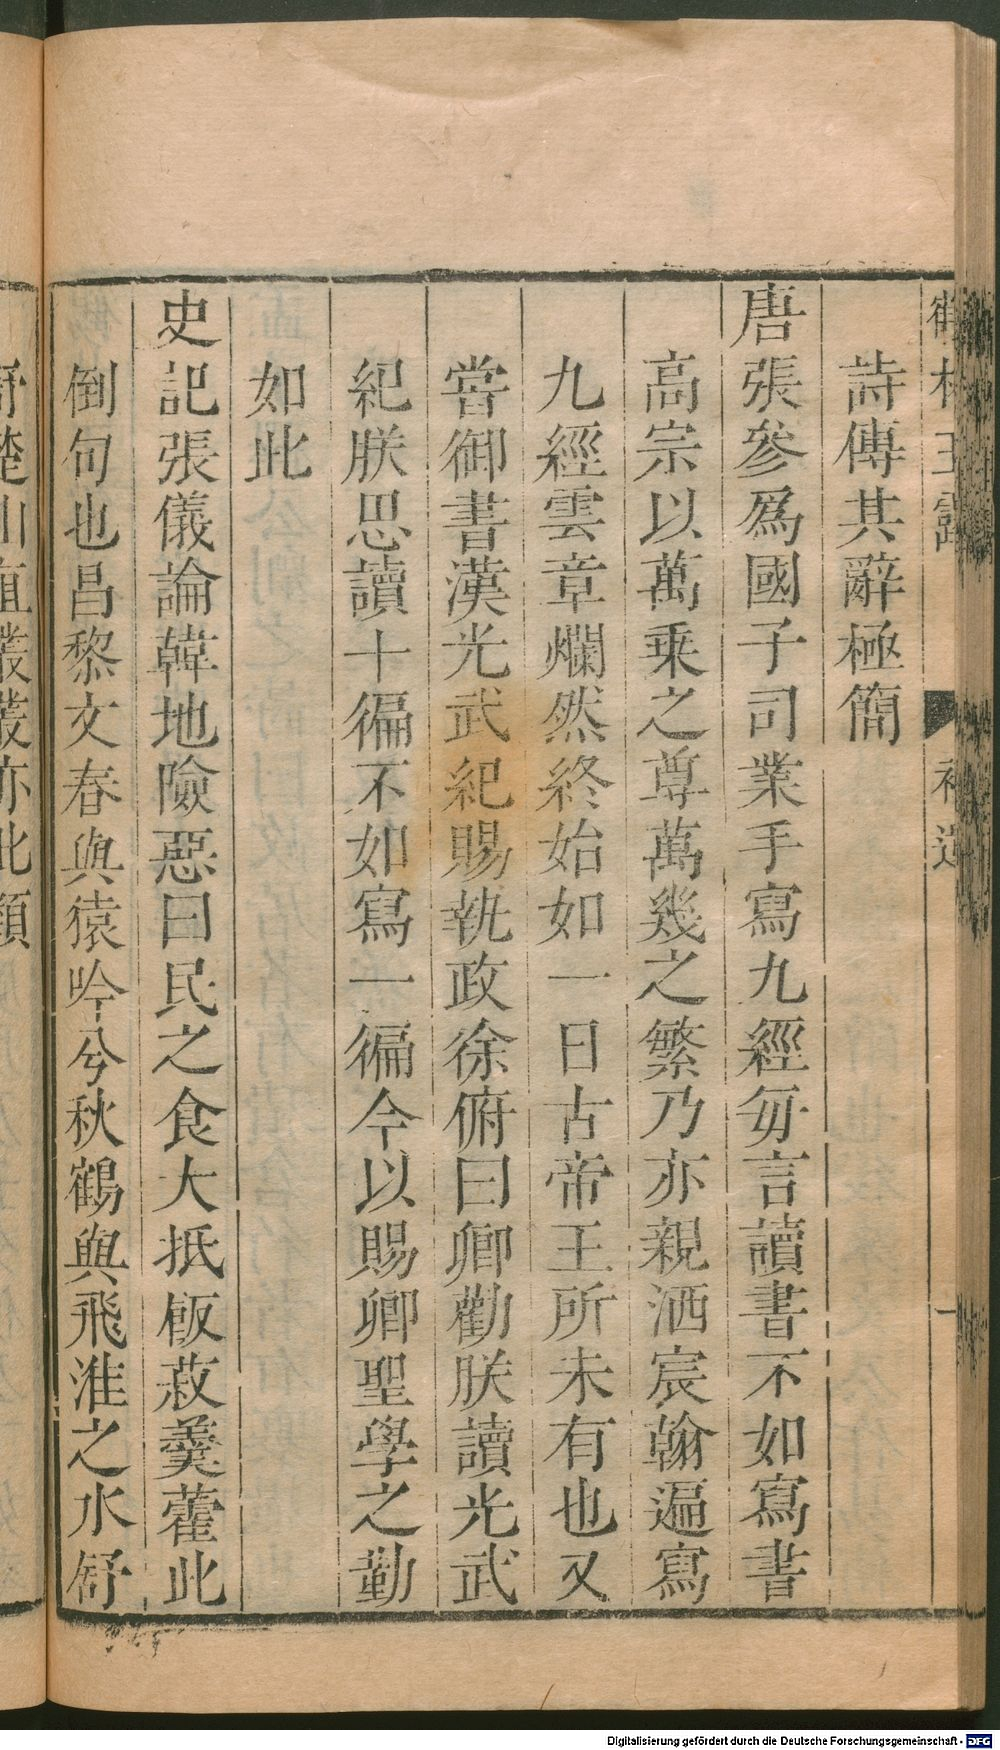 詩傳其辭極簡
唐張參爲國子司業手寫九經每言讀書不如寫書
高宗以萬乗之尊萬幾之繁乃亦親洒宸翰遍寫
九經雲章爛然終始如一日古帝王所未有也又
嘗御書漢光武紀賜執政徐俯曰卿勸朕讀光武
紀朕思讀十徧不如寫一徧今以賜卿聖學之勤
如此
史記張儀論韓地險惡曰民之食大抵飯菽羹藿此
倒句也昌黎文春與猿吟兮秋鶴與飛淮之水舒
舒楚山直叢叢亦此類
Digitalisierung gefördert durch die Deutsche Forschungsgemeinschaft - DFG